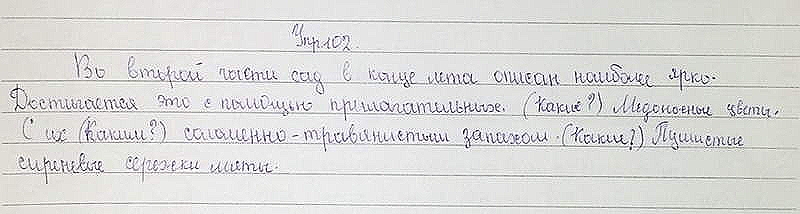 Упр 102.
Во второй части сад в конце лета описан наиболее ярко.
Достигается это с помощью прилагательных. (Какие?) Медоносные цветы.
С их (Каким?) соломенно-травянистым запахом. (Какие?) Пушистые
сиреневые сережки мяты.